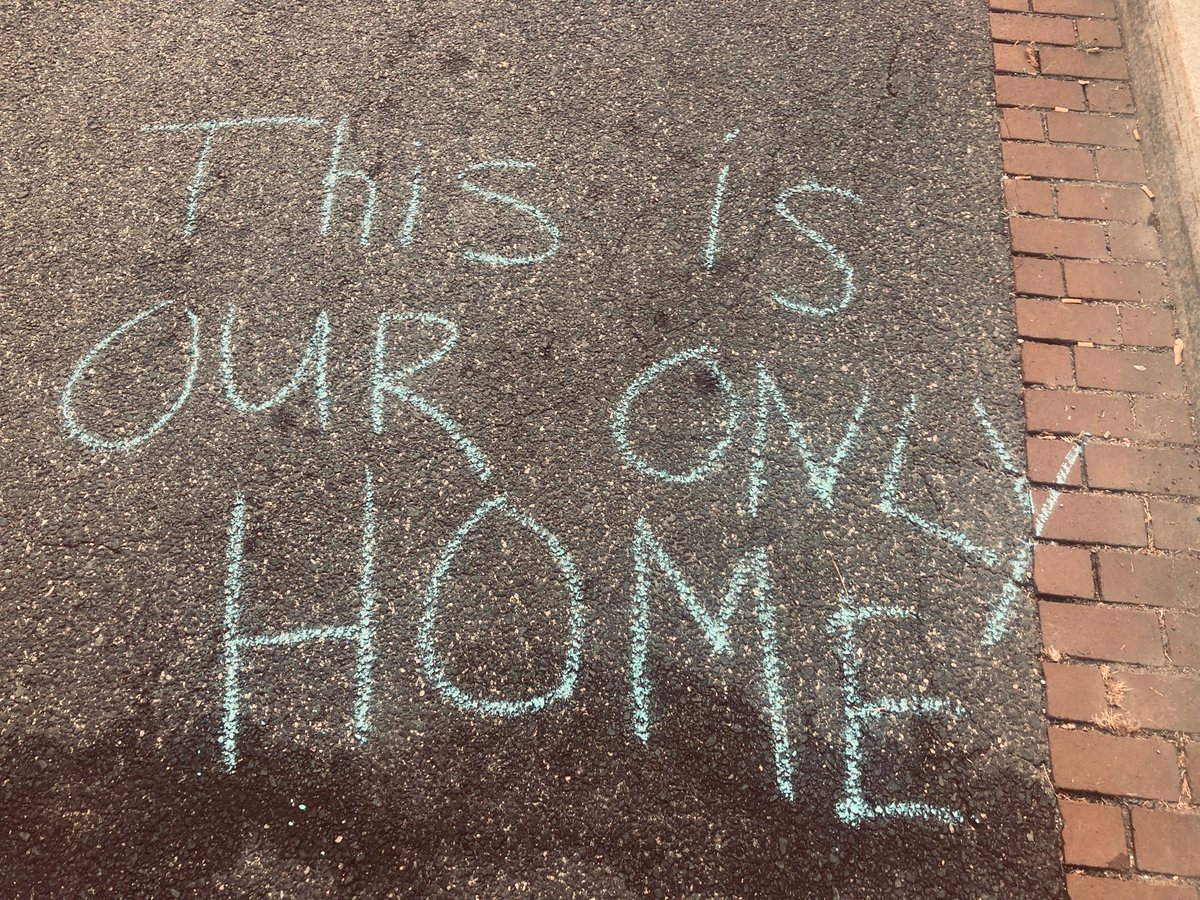 This is
OUR ONLY
HOME